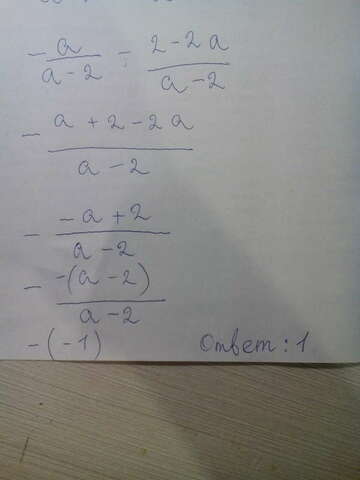 -a/(a-2) - (2-2a)/(a-2)
- (a+2-2a)/(a-2)
- (-a+2)/(a-2)
- (-(a-2))/(a-2)
-(-1) Ответ: 1